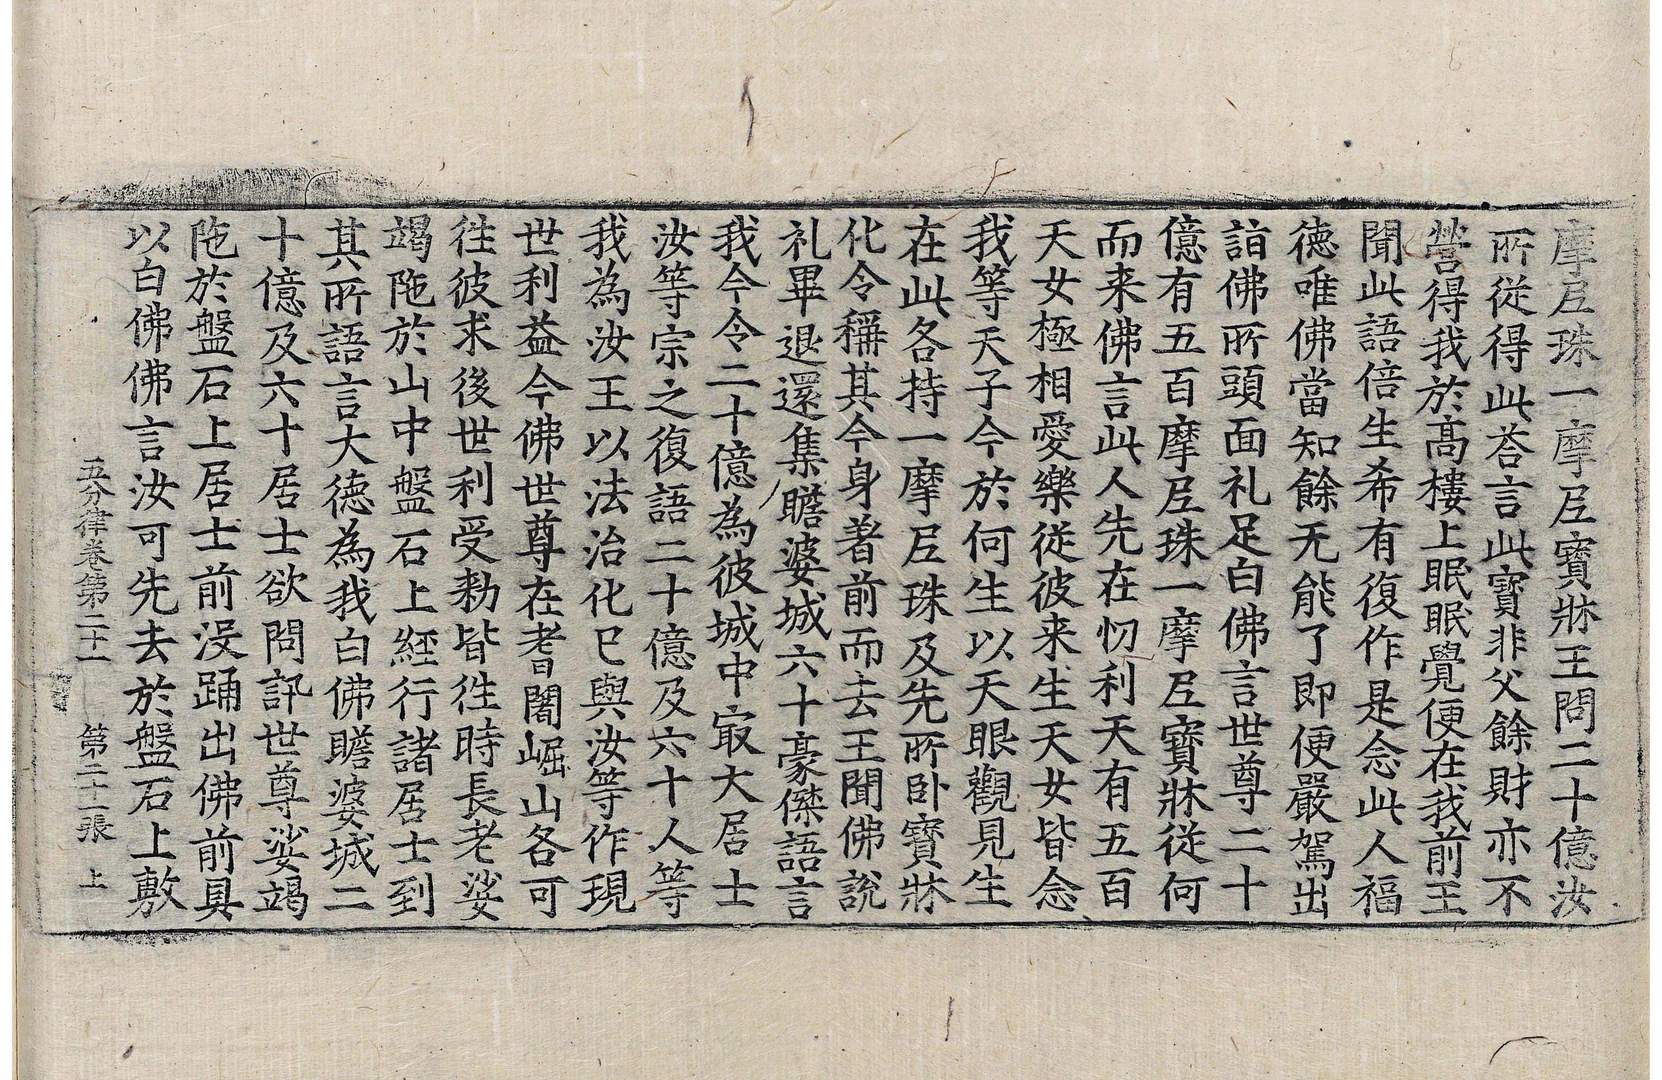 摩尼珠一摩尼寶牀王問二十億汝
所從得此荅言此寶非父餘財亦不
營得我於髙樓上眠眠覺便在我前王
聞此語倍生希有復作是念此人福
德唯佛當知餘无能了即便嚴駕出
詣佛所頭面礼足白佛言世尊二十
億有五百摩尼珠一摩尼寶牀從何
而来佛言此人先在忉利天有五百
天女極相愛樂從彼来生天女皆念
我等天子今於何生以天眼觀見生
在此各持一摩尼珠及先所卧寶牀
化令稱其今身著前而去王聞佛說
礼畢退還集瞻婆城六十豪傑語言
我今令二十億為彼城中㝡大居士
汝等宗之復語二十億及六十人等
我為汝王以法治化已與汝等作現
世利益今佛世尊在耆闍崛山各可
往彼求後世利受勑皆往時長老娑
竭陁於山中盤石上經行諸居士到
其所語言大德為我白佛瞻婆城二
十億及六十居士欲問訊世尊娑竭
陁於盤石上居士前没踊出佛前具
以白佛佛言汝可先去於盤石上敷
五分律卷第二十一　第二十二張　上